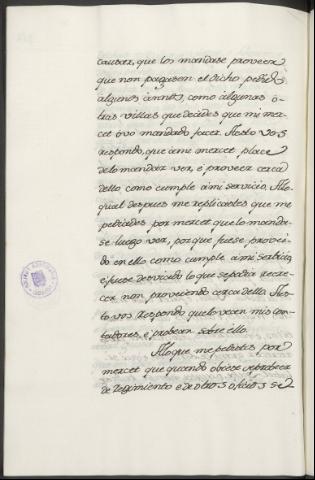 causar, que los mandase proveer
que non pagasen el dicho pedido
algunos annos, como algunas o-
tras villas que decides que mi mer-
cet ovo mandado facer. A esto vos
respondo, que a mi mercet place
de lo mandar ver, e proveer cerca
dello como cumple a mi servicio. A lo
qual despues me replicastes que me
pediades por mercet que lo manda-
se luego ver, por que fuese provei-
do en ello como cumple a mi serbicio,
e fuese desviado lo que se podria recre-
cer non proveiendo cerca dello. A es-
to vos respondo que lo vean mis con-
tadores, e probean sobre ello.
A lo que me pedistes por
mercet que quando obiese de probeer
de regimiento e de otros oficios se